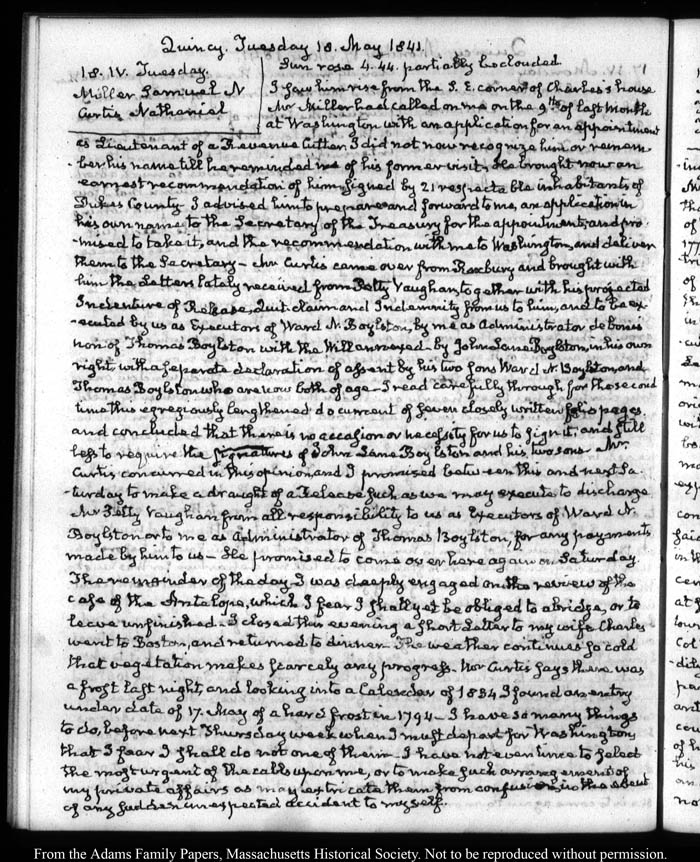 Quincy. Tuesday 18. May 1841.
18. IV. Tuesday.
Miller Samuel N
Curtis Nathaniel
Sun rose 4.44. partially beclouded.
I saw him rise from the S. E. corner of Charles's house
Mr Miller had called on me on the 9th of last month
at Washington with an application for an appointment
as Lieutenant of a Revenue Cutter. I did not now recognize him or remem
-ber his name till he reminded me of his former visit. He brought now an
earnest recommendation of him, signed by 21 respectable inhabitants of
Dukes County. I advised him to prepare and forward to me, an application in
his own name to the Secretary of the Treasury for the appointment, and pro
-mised to take it, and the recommendation with me to Washington, and deliver
them to the Secretary - Mr Curtis came over from Roxbury and brought with
him the Letters lately received from Petty Vaughan, together with his projected
Indenture of Release, Quit-claim and Indemnity from us to him, and to be ex
-ecuted by us as Executors of Ward N. Boylston, by me as Administrator de bonis
non of Thomas Boylston with the Will annexed - by John Lane Boylston, in his own
right, with a separate declaration of assent by his two sons Ward N. Boylston, and
Thomas Boylston who are now both of age - I read carefully through for the second
time this egregiously lengthened document of seven closely written folio pages
and concluded that there is no occasion or necessity for us to sign it; and still
less to require the signatures of John Lane Boylston and his two sons - Mr.
Curtis concurred in this opinion, and I promised between this and next Sa-
-turday to make a draught of a Release such as we may execute to discharge
Mr Petty Vaughan from all responsibility to us as Executors of Ward N.
Boylston or to me as Administrator of Thomas Boylston, for any payments
made by him to us - He promised to come over here again on Saturday.
The remainder of the day I was deeply engaged on the review of the
case of the Antelope, which I fear I shall yet be obliged to abridge, or to
leave unfinished - I closed this evening a short Letter to my wife. Charles
went to Boston, and returned to dinner. The weather continues so cold
that vegetation makes scarcely any progress. Mr Curtis says there was
a frost last night, and looking into a Calendar of 1834 I found an entry
under date of 17. May of a hard frost in 1794 - I have so many things
to do, before next Thursday week when I must depart for Washington,
that I fear I shall do not one of them - I have not even time to select
the most urgent of the calls upon me, or to make such arrangements of
my private affairs as may extricate them from confusion in the event
of any sudden unexpected accident to myself.
From the Adams Family Papers, Massachusetts Historical Society. Not to be reproduced without permission.